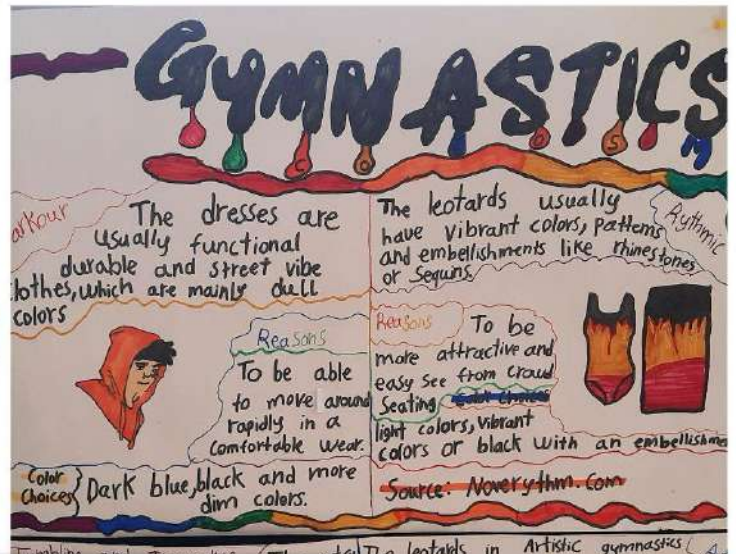 GYMNASTICS
C O O S M
arkour
The dresses are
usually functional
durable and street vibe
lothes, which are mainly dull
colors
Reasons
To be able
to move around
rapidly in a
comfortable wear.
Color
Choices
Dark blue, black and more
dim colors.
Rythmic
The leotards usually
have vibrant colors, patterns
and embellishments like rhinestones
or Sequins.
Reasons
To be
more attractive and
easy see from crowd
Seating Color Choices
light colors, vibrant
colors or black with an embellishme
Source: Noverythm.com
The leotards in Artistic gymnastics